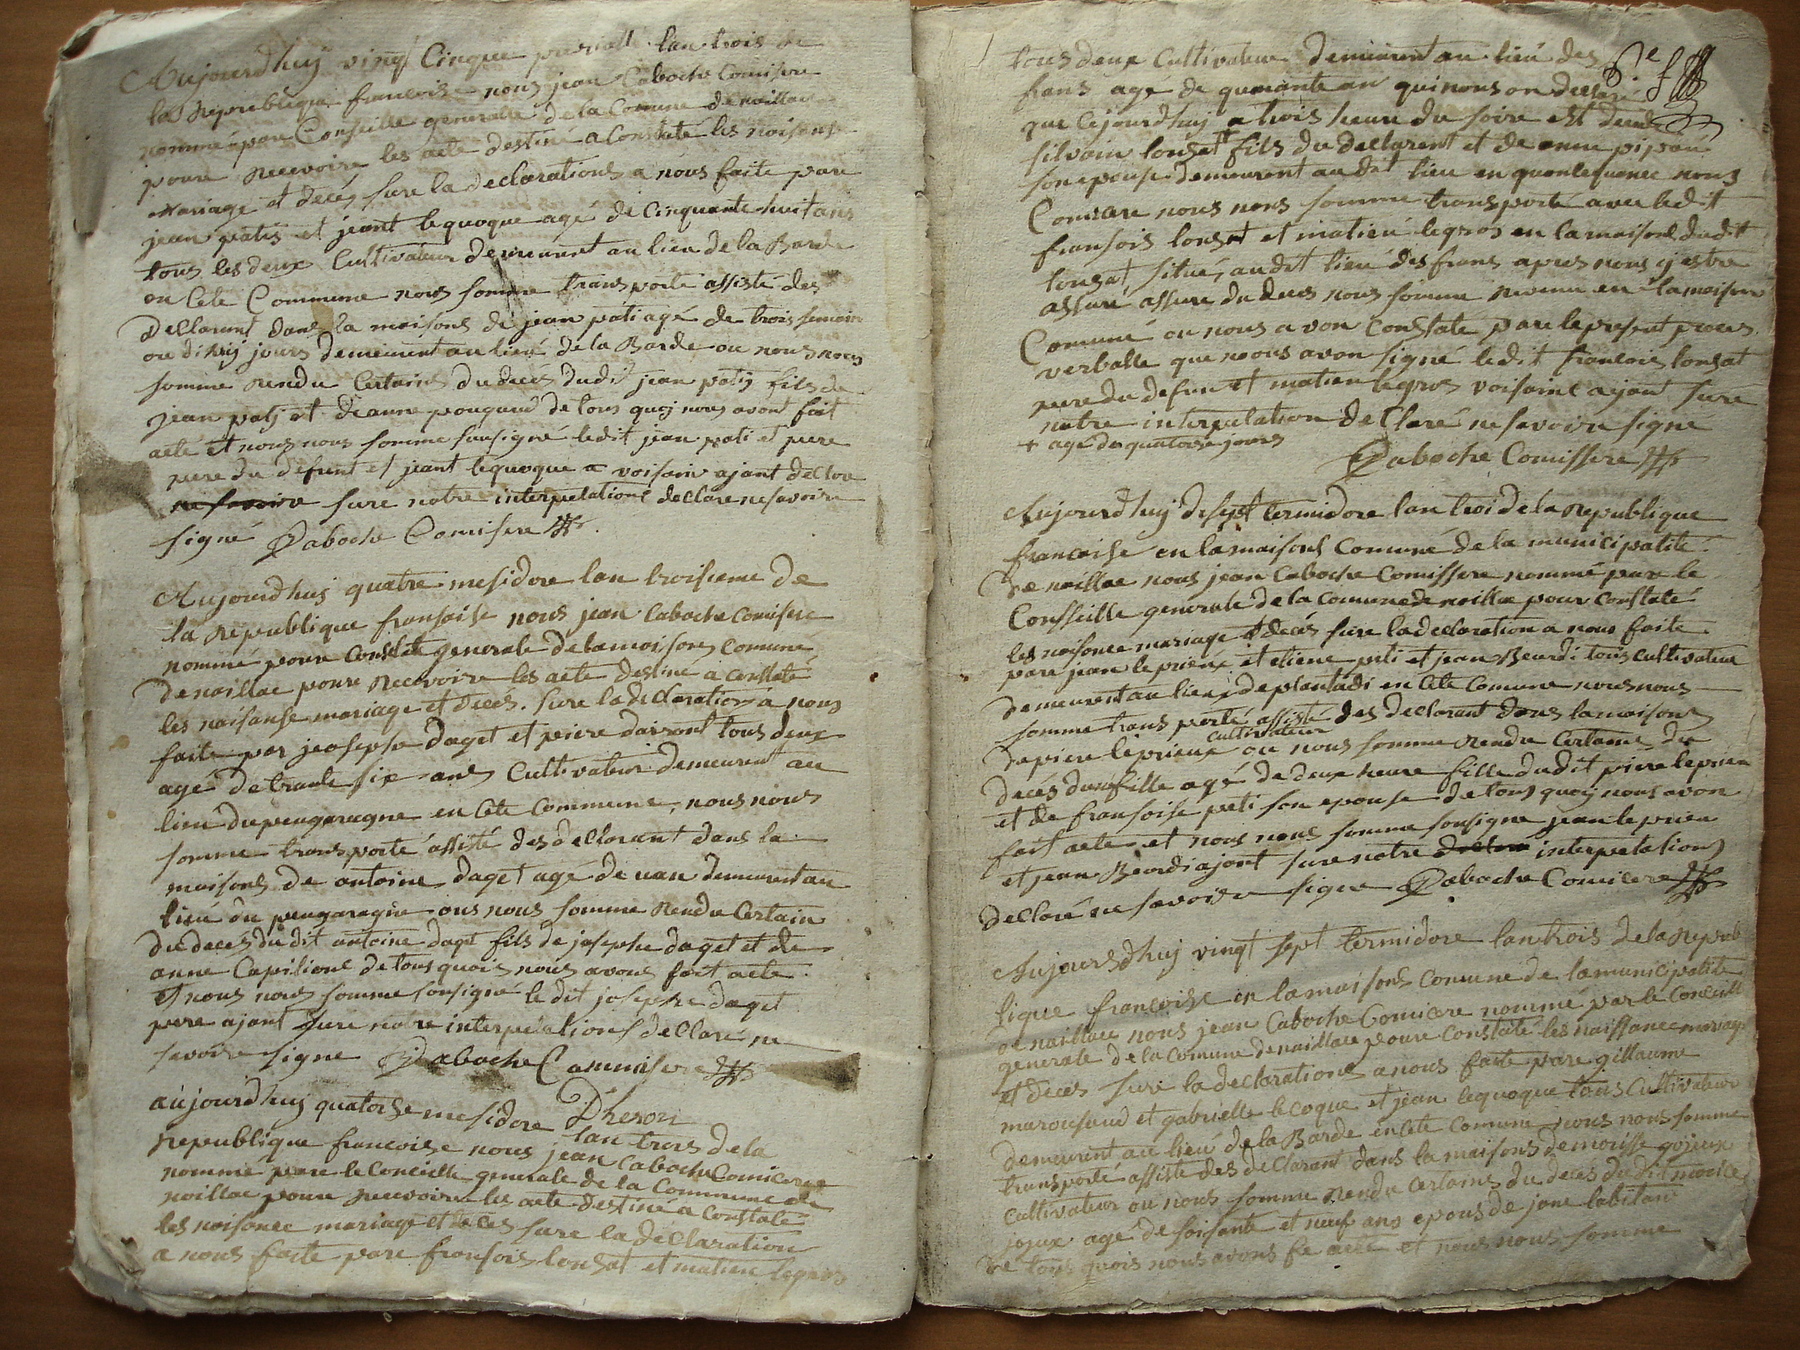 Aujourdhuy vingt Cinque prerialle lan trois de
la Republique francoise nous jean Caboche Comisere
nommé pare Conseille generalle de la Comune de noillac
poure recevoire les acte destiné a Constaté les noisans
mariage et decés sure la declarations a nous faite pare
jean patis et jeant lequoque agé de Cinquante huit ans
tous les deux Cultivateur demeurent au lieu de la Barde
en Cete Commune nous somme transporté assisté des
declarant dans la maisons de jean pati agé de trois semain
ou dixhuj jours demeurent au lieu de la Barde ou nous nous
somme rendu Certains du decés dudit jean patij fils de
jean patj et de anne pouquaud de tous quoj nous avont fait
acte et nous nous somme sousigné ledit jean pati et pere
pere du defunt et jeant lequoque a voisain ajant declare
sure notre interpelations declare ne savoire
signé Daboche Comisere
Aujourdhuj quatre mesidore lan troisieme de
la republique fransoise nous jean Caboche Comisere
nommé poure constate generale de la moisons comune
de naillac poure recevoire les acte destiné a constaté
les naisanse mariage et decés. sure la declarations a nous
faite par jeosephe daget et piere daisant tous deux
agé de trante six ans Cultivateur demeurent au
lieu du peugaragne en Cete Commune, nous nous
somme transporté assisté des declarant dans la
maisons de antoine daget agé de uan demeurent au
lieu du peugaragne ous nous somme rendu Certain
du decés du dit antoine daget fils de josephe daget et de
anne Capitions de tous quois nous avons fait acte
et nous nous somme sousigné le dit josephe daget
pere ajant sure notre interpelations declaré ne
savoire signe Daboche Commisere
Dheron
aujourdhuj quatorse mesidore lan trois de la
republique francoise nous jean Caboche Comicere
nommé pare le Concielle generale de la Commune de
noillac poure recevoire les acte destiné a Constaté
les noisance mariage et decés sure la declaration
a nous faite pare fransois lonsat et matieu legros
tous deux Cultivateur demeurent au lieu des
frans agé de quarante an qui nous on declaré
que Cejourdhuj a trois heure du soire est decedé
silvain lonsat + fils du declarent et de anne pipau
son epouse demeurent audit lieu en quonsequance nous
Comisare nous nous somme transporté avec ledit
fransois lonsat et matieu legros en la maisons dudit
lonsat, situé, audit lieu des frans apres nous y estre
assuré assure du deces nous somme revenu en la maison
Comune ou nous avon Constaté pare le present proces
verballe que noous avon signé ledit francois lonsat
pere du defunt et matieu legros voisaint ajant sure
notre interpelation declaré ne savoire signe
+ agé de quatorse jours
Daboche Comissere
Aujourdhuj disept termidore lan troi de la republique
francoise en la maisons Comune de la municipalité
de noillac nous jean Caboche Comissere nommé pare le
Consseille generale de la comune de noillac poure constaté
les naisonce mariage et decés sure la declaration a nous faite
pare jean le prieux et etiene peti et jean Beurdi tous cultivateur
demeurent au lieu de plantadi en Cete Comune nous nous
somme trans porté assisté des declarant dans la maisons
de piere le prieux cultivateur ou nous somme rendu Certaine du
decés dune fille agé de deux heure fille dudit piere le prieu
et de fransoise peti son epouse de tous quoij nous avon
fait acte et nous nous somme sousigne jean le prieu
et jean Beurdi ajant sure notre interpelations
declaré ne savoire signe Daboche Comicere
Aujourdhuj vingt sept termidore lan trois de la repub
lique francoise en la maisons Comune de la municipalité
de naillac nous jean Caboche Comicere nommé par le Conseille
generale de la Comune de naillac poure Constaté les naissance mariage
et deces sure la declarations a nous faite pare gillaume
marousaud et gabrielle le coque et jean lequoque tous Cultivateur
demeurent au lieu de la Barde en Cete Comune nous nous somme
transporté assisté des declarant dans la maisons de morisse jojeux
cultivateur ou nous somme rendu Certains du deces dudit morice
jojeux agé de soisante et neuf ans epous de jane labitan
de tous quois nous avons fe acte et nous nous somme